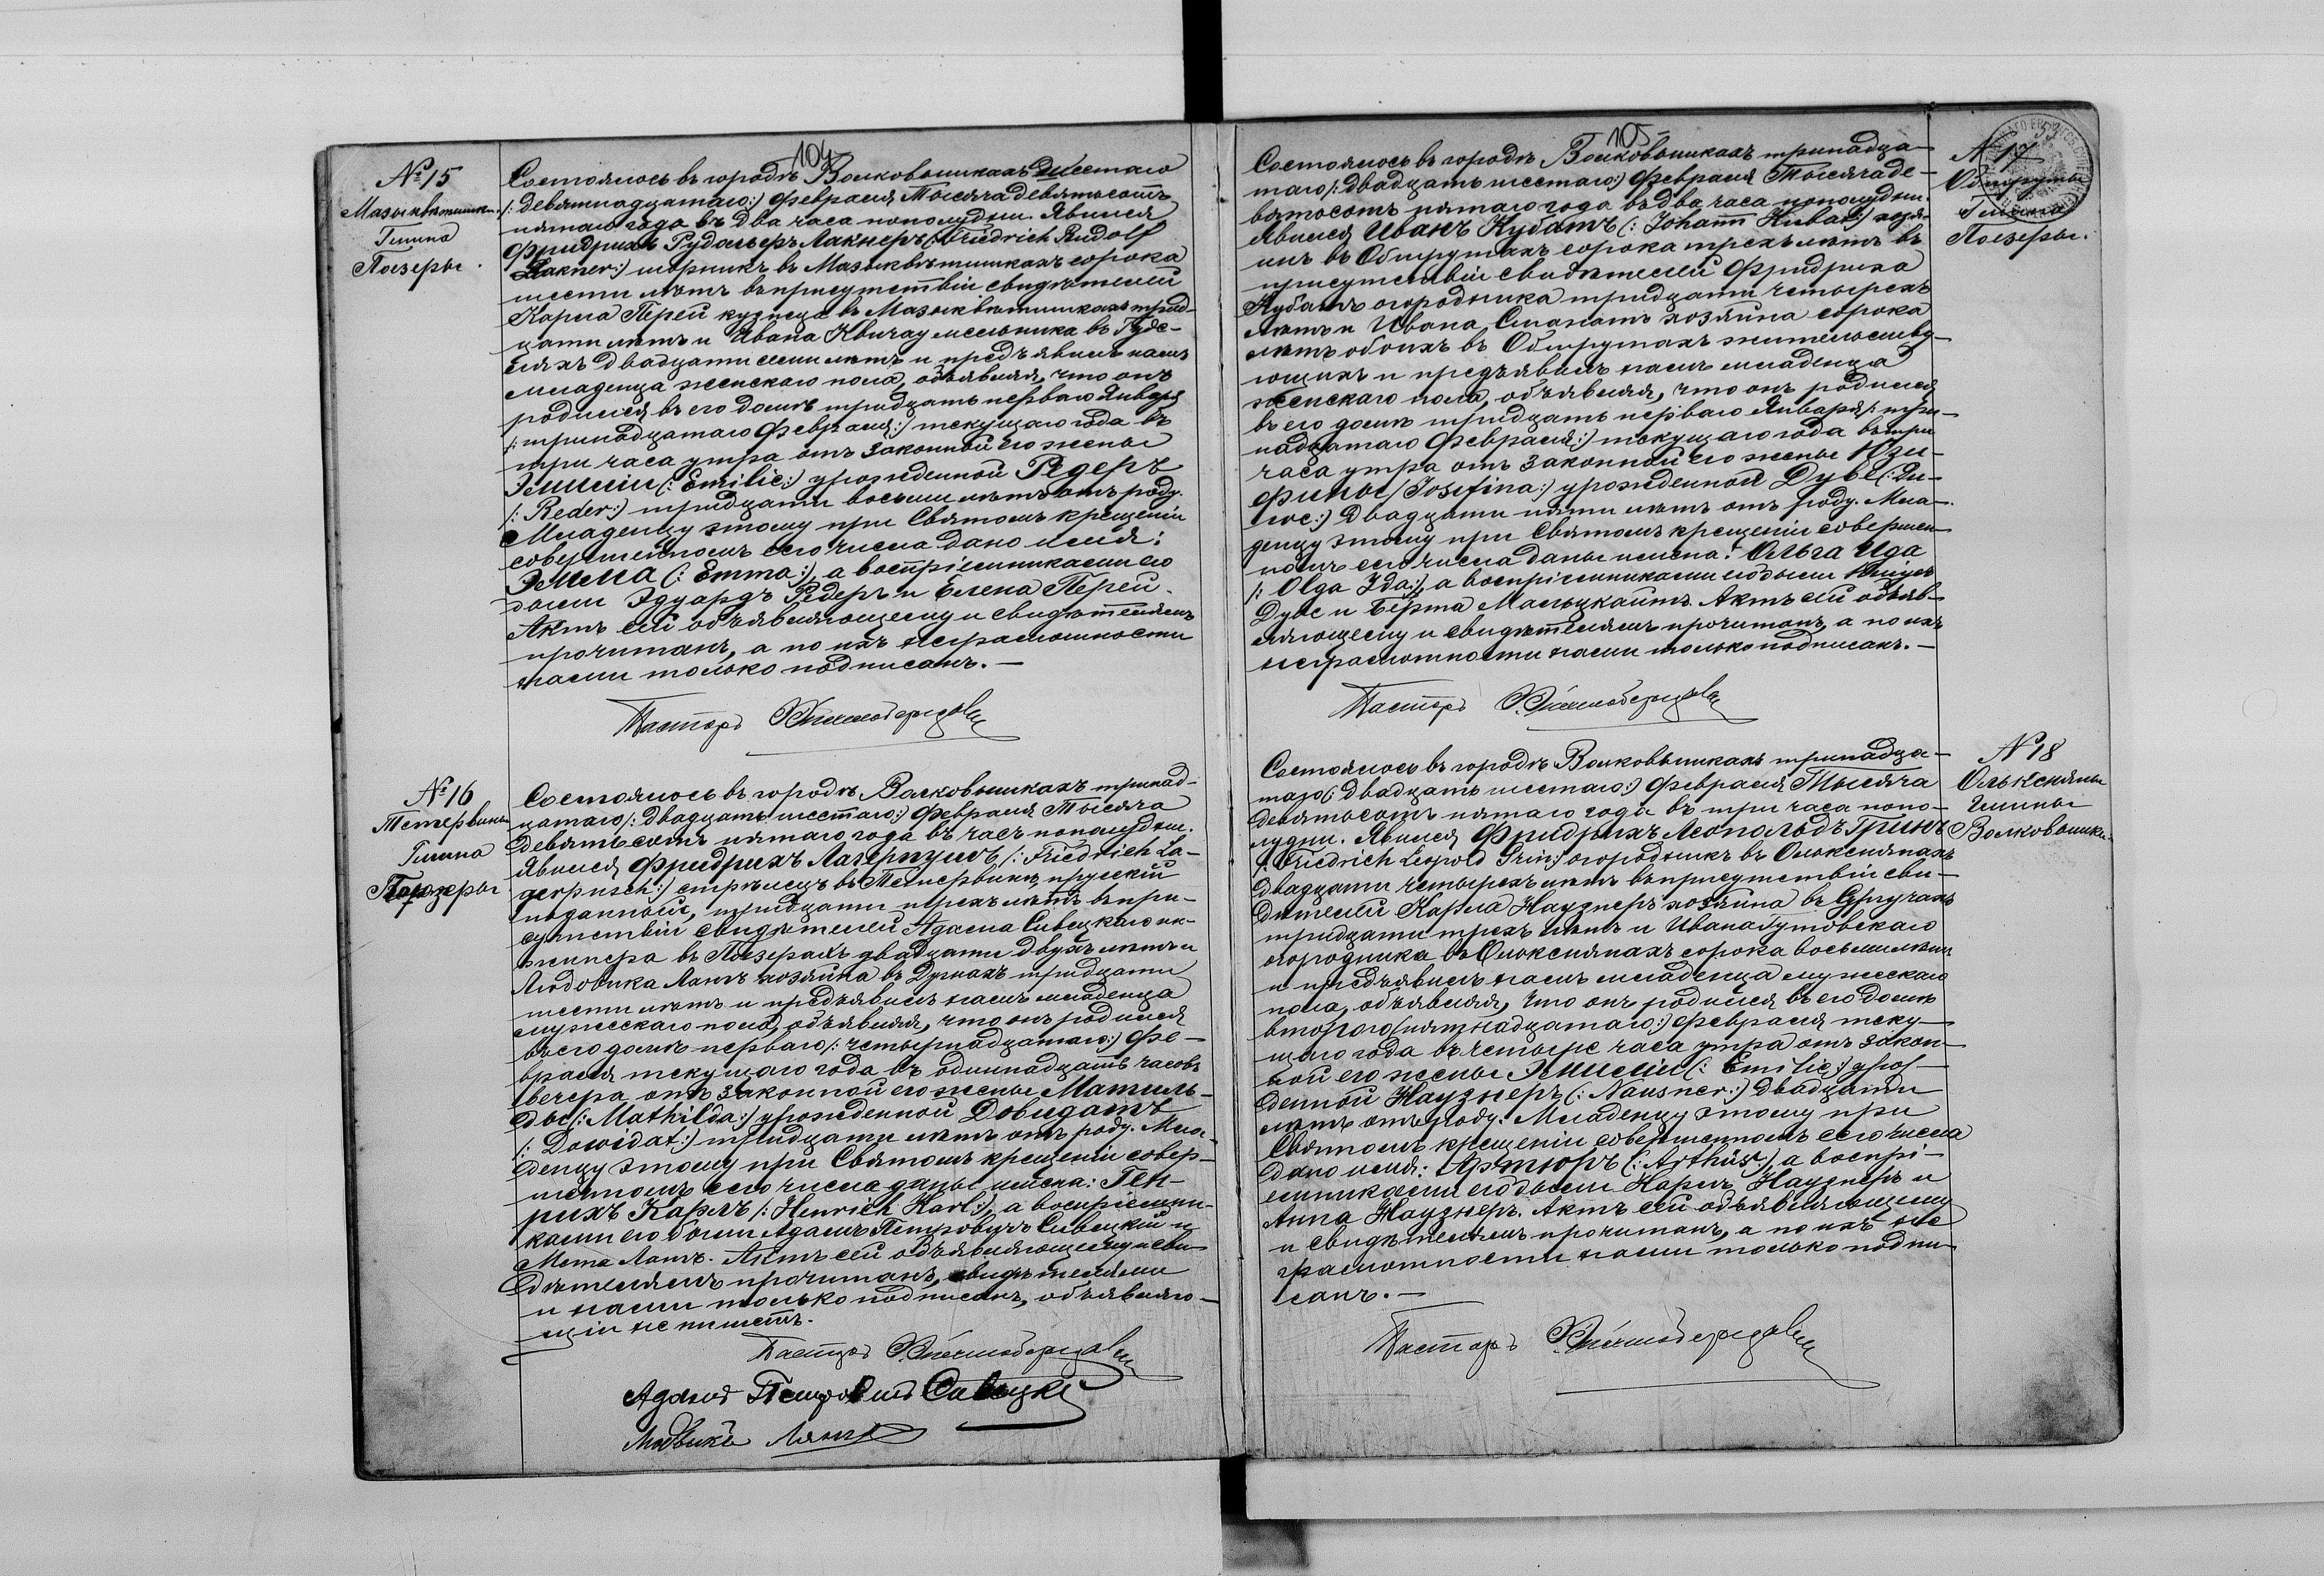 104
№ 15
Мазыквѣтишки.
Гмина
Поезеры.
Состоялось въ городѣ Волковышкахъ Шестаго
/: девятнадцатаго :/ Февраля Тысяча девятьсотъ
пятаго года въ два часа пополудни. Явился
Фридрихъ Рудольфъ Лакнеръ (: Friedrich Rudolf
Lakner :) шорникъ въ Мазыквѣтишкахъ сорока
шести лѣтъ въ присутствіи свидѣтелей
Карла Перей кузнеца въ Мазыквѣтишкахъ трид-
цати лѣтъ и Ивана Квичау мельника въ Гуде-
ляхъ двадцати семи лѣтъ и предъявилъ намъ
младенца женскаго пола, объявляя, что онъ
родился въ его домѣ тридцать перваго Января
/: тринадцатаго Февраля :/ текущаго года въ
три часа утра отъ законной его жены
Эмиліи (: Emilie :) урожденной Редеръ
/: Reder :) тридцати восьми лѣтъ отъ роду.
Младенцу этому при Святомъ крещеніи
совершенномъ сего числа дано имя:
Эмма (: Emma :), а воспріемниками его
были Эдуардъ Редеръ и Елена Перей.
Актъ сей объявляющему и свидѣтелямъ
прочитанъ, а по ихъ неграмотности
нами только подписанъ. —
Пасторъ
№ 16
Тетервины
Гмина
Поезеры
Состоялось въ городѣ Волковышкахъ тринад-
цатаго /: двадцать шестаго :) Февраля Тысяча
девятьсотъ пятаго года въ часъ пополудни.
Явился Фридрихъ Лагерпушъ (: Friedrich La-
gerpusch :) стрѣлецъ въ Тетервинѣ, прусскій
подданный, тридцати трехъ лѣтъ въ при-
сутствіи свидѣтелей Адама Сивецкаго ин-
женера въ Поезерахъ двадцати двухъ лѣтъ и
Людовика Латъ хозяина въ Дугнахъ тридцати
шести лѣтъ и предъявилъ намъ младенца
мужескаго пола, объявляя, что онъ родился
въ его домѣ перваго /: четырнадцатаго :) Фе-
враля текущаго года въ одиннадцать часовъ
вечера отъ законной его жены Матиль-
ды (: Mathilda :) урожденной Довидатъ
/: Dowidat :) тридцати лѣтъ отъ роду. Мла-
денцу этому при Святомъ крещеніи совер-
шенномъ сего числа даны имена: Ген-
рихъ Карлъ /: Henrich Karl :), а воспріемни-
ками его были Адамъ Петровичъ Сивецкій и
Мета Латъ. Актъ сей объявляющему и сви-
дѣтелямъ прочитанъ, свидѣтелями
и нами только подписанъ, объявляю-
щій не пишетъ.
Пасторъ
Адамъ Петровичъ Сивецкій
Людвикъ
105
№ 17
Обшруты
Гмина
Поезеры.
Состоялось въ городѣ Волковышкахъ тринадца-
таго /: двадцать шестаго :) Февраля Тысяча де-
вятьсотъ пятаго года въ два часа пополудни.
Явился Иванъ Кубатъ (: Johann Kubat :) хозя-
инъ въ Обшрутахъ сорока трехъ лѣтъ въ
присутствіи свидѣтелей Фридриха
Кубатъ огородника тридцати четырехъ
лѣтъ и Ивана Станатъ хозяина сорока
лѣтъ обоихъ въ Обшрутахъ жительству-
ющихъ и предъявилъ намъ младенца
женскаго пола, объявляя, что онъ родился
въ его домѣ тридцать перваго Января /: три-
надцатаго Февраля :) текущаго года въ три
часа утра отъ законной его жены Юзе-
фины /: Josefina :) урожденной Дуве (: Du-
we :) двадцати пяти лѣтъ отъ роду. Мла-
денцу этому при Святомъ крещеніи совершен-
номъ сего числа даны имена: Ольга Ида
/: Olga Ida :), а воспріемниками его были
Дуве и Берта Малыцкайтъ. Актъ сей объяв-
ляющему и свидѣтелямъ прочитанъ, а по ихъ
неграмотности нами только подписанъ. —
Пасторъ
№ 18
Ольксняны
Гмины
Волковышки.
Состоялось въ городѣ Волковышкахъ тринадца-
таго (: двадцать шестаго :) Февраля Тысяча
девятьсотъ пятаго года въ три часа попо-
лудни. Явился Фридрихъ Леопольдъ Гринъ
(: Friedrich Leopold Grin :) огородникъ въ Ольксня­нахъ
двадцати четырехъ лѣтъ въ присутствіи сви-
дѣтелей Карла Наузнеръ хозяина въ Сургучахъ
тридцати трехъ лѣтъ и Ивана Гутовскаго
огородника въ Олькснянахъ сорока восьми лѣтъ
и предъявилъ намъ младенца мужескаго
пола, объявляя, что онъ родился въ его домѣ
втораго (: пятнадцатаго :) Февраля теку-
щаго года въ четыре часа утра отъ закон-
ной его жены Эмиліи (: Emilie :) урож-
денной Наузнеръ (: Nausner :) двадцати
лѣтъ отъ роду. Младенцу этому при
Святомъ крещеніи совершенномъ сего числа
дано имя: Артюръ (: Arthur :), а воспрі-
емниками его были Карлъ Наузнеръ и
Анна Наузнеръ. Актъ сей объявляющему
и свидѣтелямъ прочитанъ, а по ихъ не-
грамотности нами только подпи-
санъ. —
Пасторъ